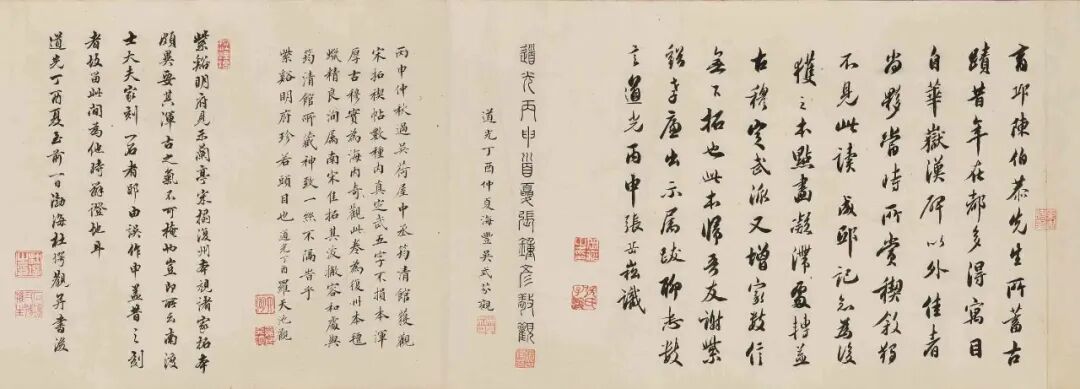 商邱陳伯恭先生所蓄古
蹟昔年在都多得寓目
自華嶽漢碑以外佳者
尚夥當時所賞稧敘獨
不見此讀成邸記知為後
獲之本點畫凝潭處轉益
古穆定武派又增家數信
無下拓也此本歸吾友謝紫
谿孝廉出示屬跋聊志數
言道光丙申張岳崧識
道光丙申首夏張鍾彥敬觀
道光丁酉仲夏海豐吳式芬觀
丙申仲秋過吳荷屋中丞筠清館獲觀
宋拓稧帖數種內真定武五字不損本渾
厚古穆實為海內奇觀此卷為復州本氊
蠟精良洵屬南宋佳拓其波撇容和處與
筠清館所藏神致一然不漏
紫谿明府珍若頭目也道光丁酉羅天池觀
紫谿明府見示蘭亭宋搨復州本視諸家拓本
頗異要其渾古之氣不可掩也豈即所云南渡
士大夫家刻一石者耶由誤作申蓋昔之刻
者故留此間為他時辨證地耳
道光丁酉夏至前一日渤海杜堮觀并書後